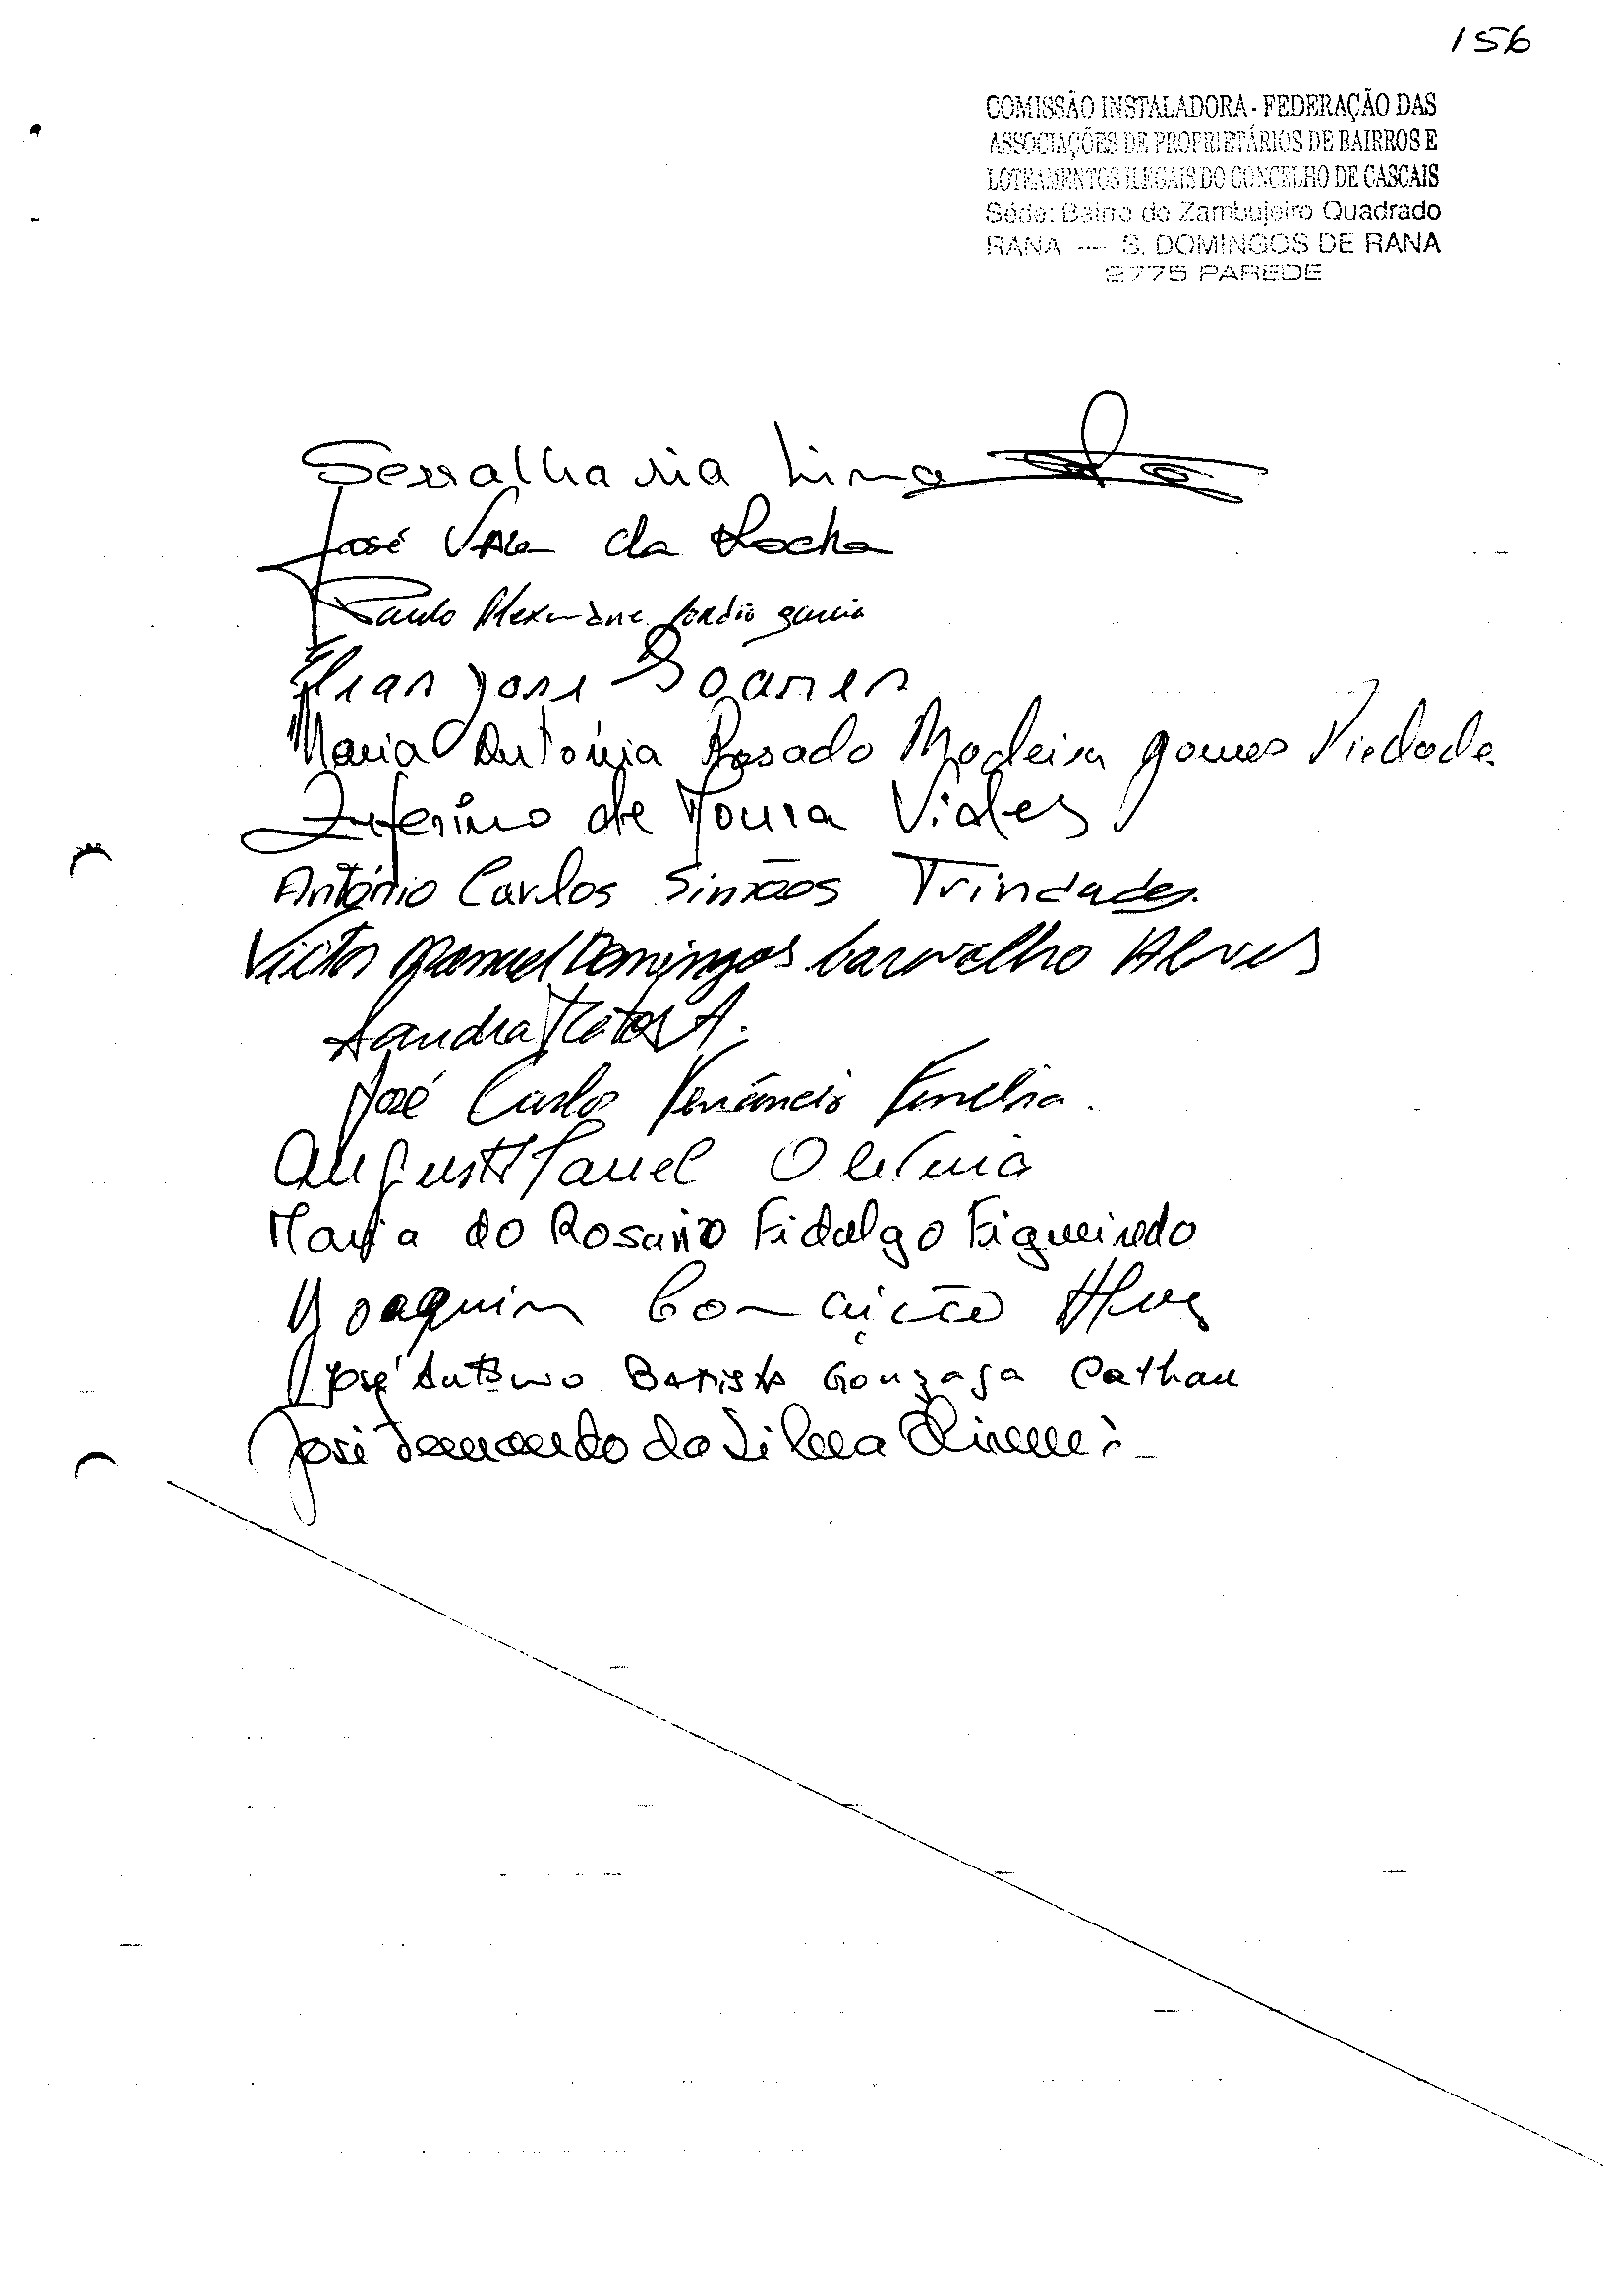 156
COMISSÃO INSTALADORA - FEDERAÇÃO DAS
ASSOCIAÇÕES DE PROPRIETÁRIOS DE BAIRROS E
LOTEAMENTOS ILEGAIS DO CONCELHO DE CASCAIS
Séde: Bairro do Zambujeiro Quadrado
RANA --- S. DOMINGOS DE RANA
2775 PAREDE
Serralharia Lima
José Vale da Rocha
Paulo Alexandre garcia
Elias José Soares
Maria Antónia Rosado Madeira Gomes Piedade
Zeferino de Moura Vides
António Carlos Simãos Trindades.
Victor Manuel Domingos Carvalho Alves
Sandra Matos A.
José Carlos Venâncio
Augusto Manel Oliveira
Maria do Rosario Fidalgo Figueiredo
Joaquim Conceição Alves
José António Batista Gonzaga
José Fernando da Silva